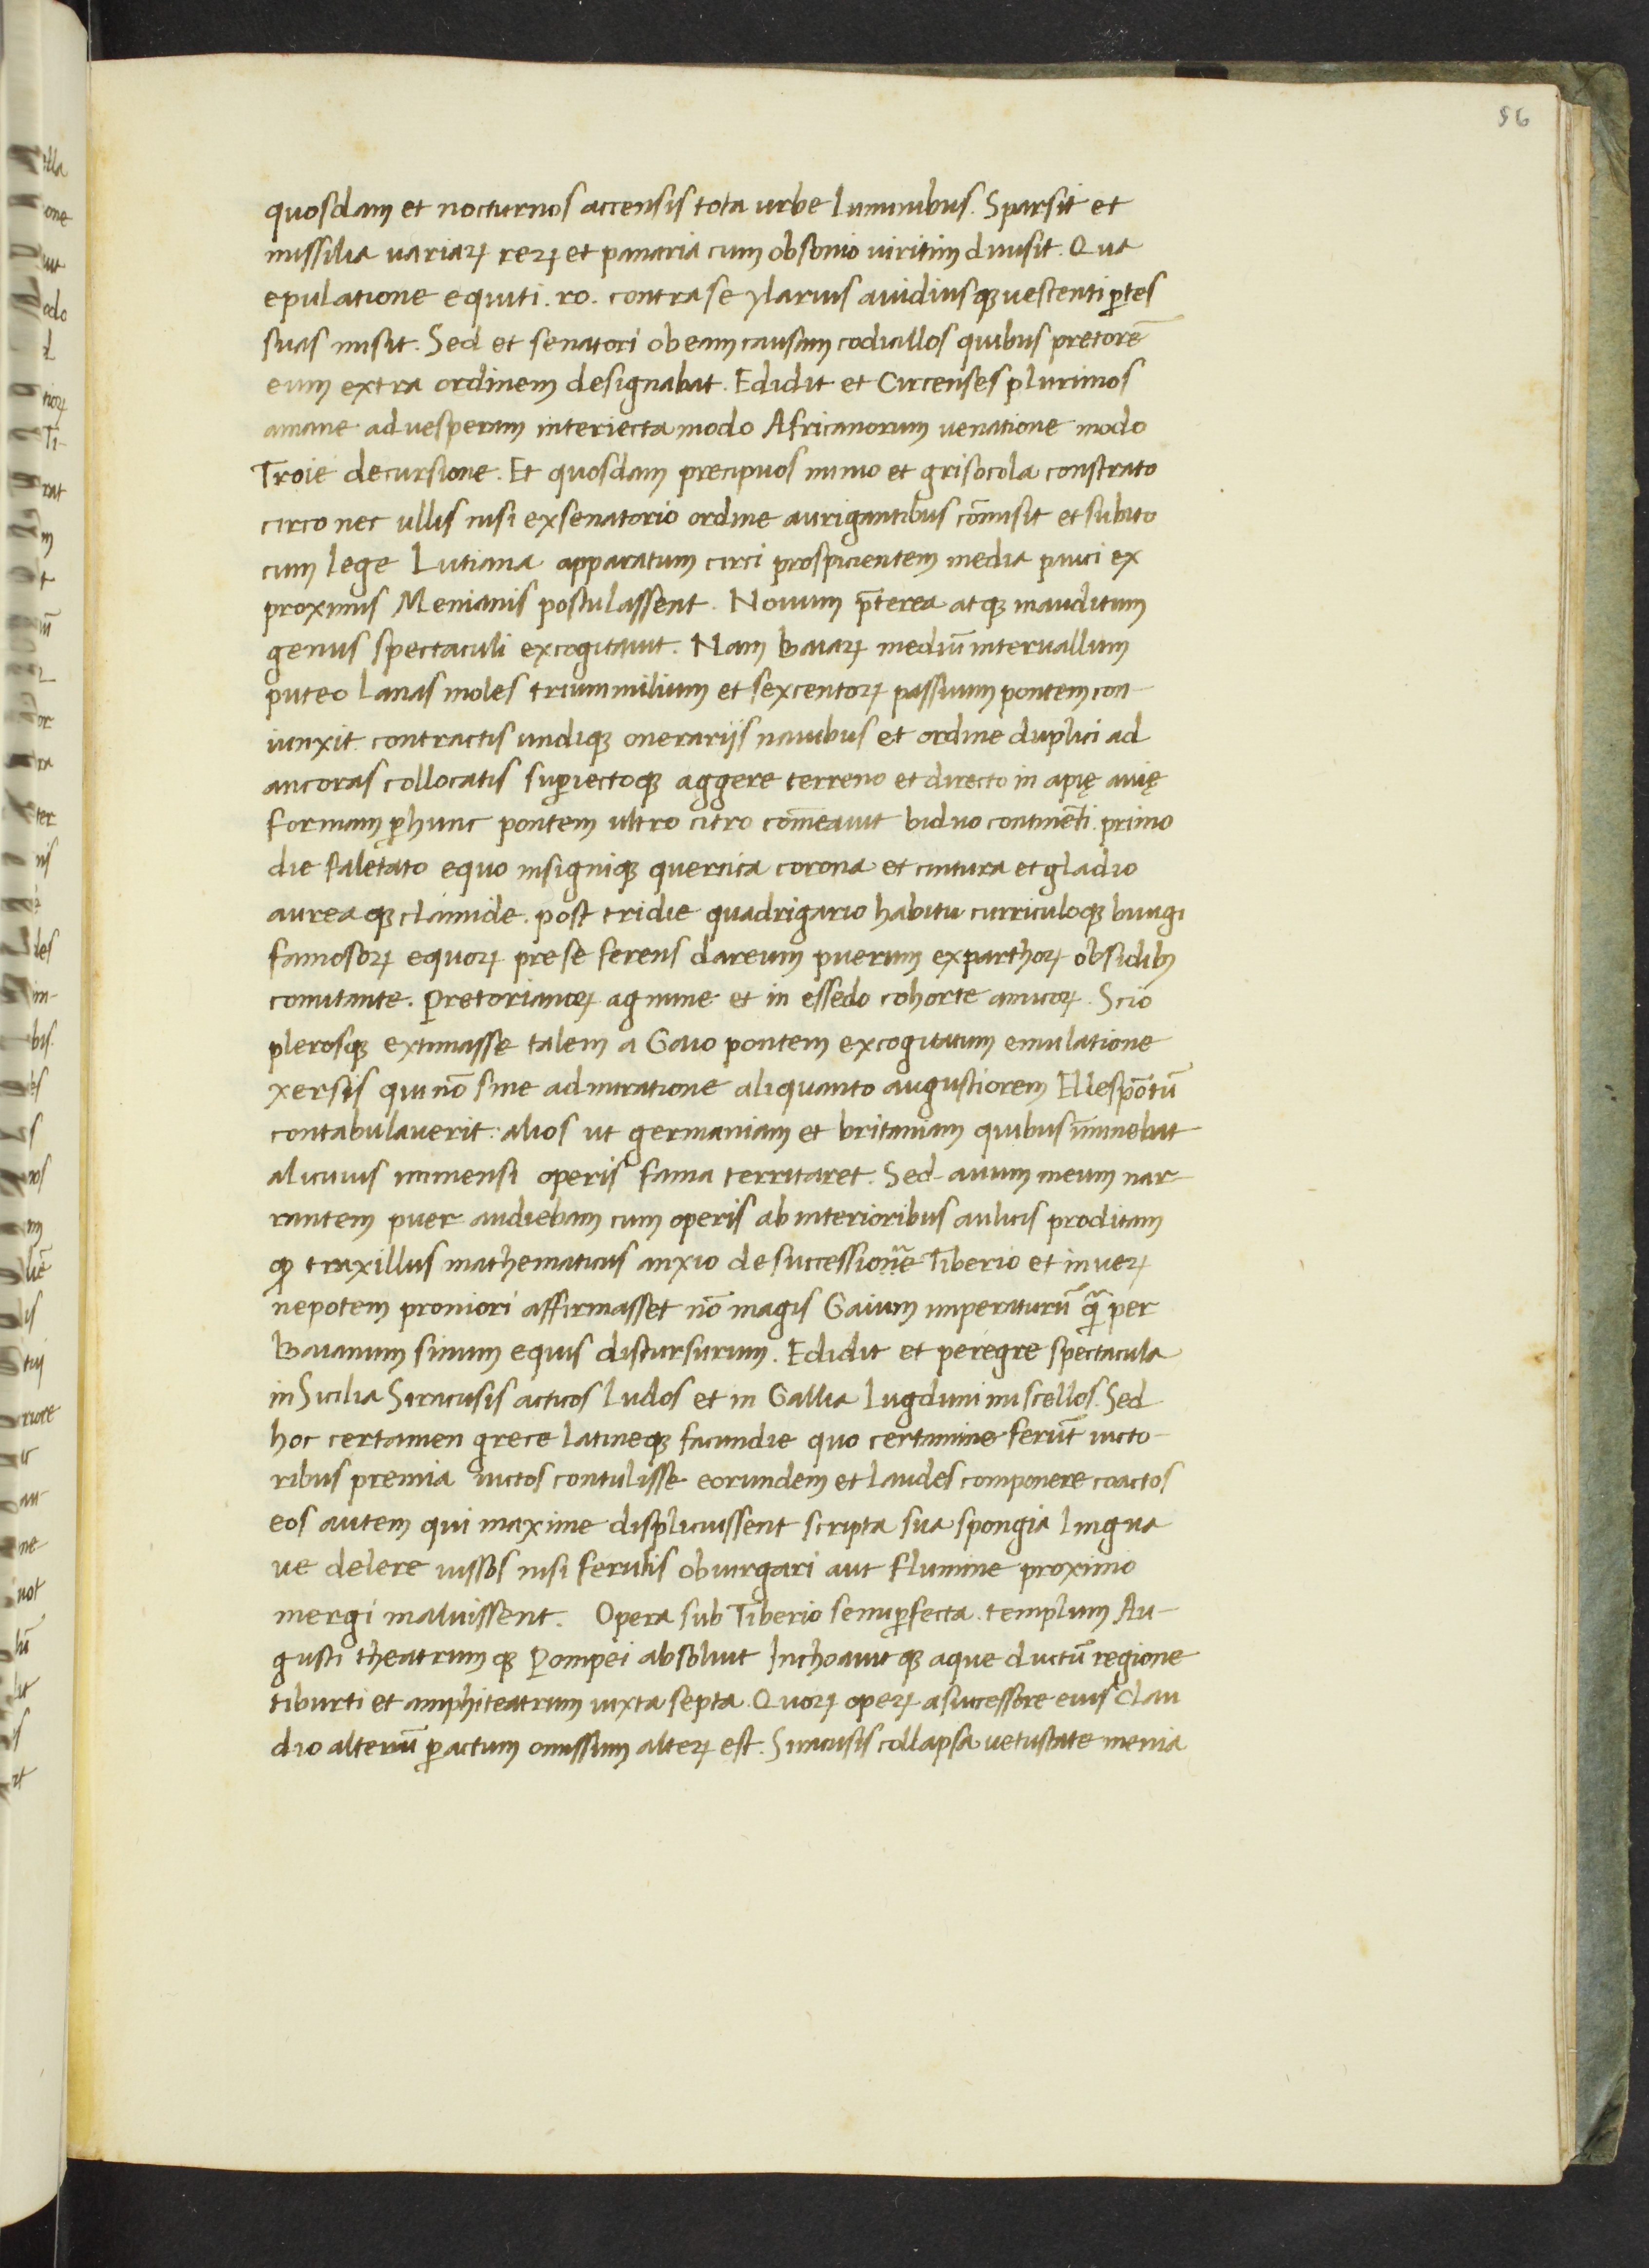 56
quosdam et nocturnos accensis tota urbe luminibus. Sparsit et
missilia variaꝝ reꝝ et panaria cum obsonio viritim divisit. Qua
epulatione equiti. ro. contra se ylarius avidiusqꝫ vescenti ꝑtes
suas misit. Sed et senatori ob eam causam codicillos quibus pretorē
eum extra ordinem designabat. Edidit et Circenses plurimos
amane ad vesperam interiecta modo Africanorum venatione modo
Troie decursione. Et quosdam precipuos mimo et grisocola constrato
circo nec ullis nisi ex senatorio ordine aurigantibus cōmisit et subito
cum lege Lutiana apparatum circi prospicientem media pauci ex
proximis Menianis postulassent. Novum p̄terea atqꝫ inauditum
genus spectaculi excogitavit. Nam Baiaꝝ mediū intervallum
puteo lanas moles trium milium et sexcentoꝝ passuum pontem con-
iunxit contractis undiqꝫ onerariis navibus et ordine duplici ad
ancoras collocatis suꝑiectoqꝫ aggere terreno et directo in apię avię
formam ꝑ hunc pontem ultro citro com̄eavit biduo continēti. primo
die faletato equo insigniqꝫ quercica corona et cintura et gladio
aureaqꝫ clamide. post tridie quadrigario habitu curriculoqꝫ biiugi
famosoꝝ equoꝝ pre se ferens dareum puerum ex parthoꝝ obsidibꝫ
comitante. Pretorianoꝝ agmine et in essedo cohorte amicoꝝ. Scio
plerosqꝫ extimasse talem a Gaio pontem excogitatum emulatione
xersis qui nō sine admiratione aliquanto angustiorem Ellespōtū
contabulaverit: alios ut germaniam et britaniam quibus īminebat
alicuius immensi operis fama territaret. Sed avum meum nar-
rantem puer audiebam cum operis ab interioribus aulicis proditam
ꝙ traxillus mathematicus anxio de successione Tiberio et in veꝝ
nepotem proniori affirmasset nō magis Gaium imperaturū q̄ per
Baianum sinum equis discursurum. Edidit et peregre spectacula
in Sicilia Siracusis acticos ludos et in Gallia lugduni miscellos. Sed
hoc certamen grece latineqꝫ facundie quo certamine ferūt victo-
ribus premia victos contulisse eorundem et laudes componere coactos
eos autem qui maxime displicuissent scripta sua spongia lingua
ve delere iussos nisi ferulis obiurgari aut flumine proximo
mergi maluissent. Opera sub Tiberio semiꝑfecta. templum Au-
gusti theatrumqꝫ Pompei absolvit Inchoavitqꝫ aque ductū regione
tiburti et amphiteatrum iuxta septa. Quoꝝ opeꝝ a successore eius Clau
dio alterū ꝑactum omissum alteꝝ est. Siracusis collapsa vetustate menia